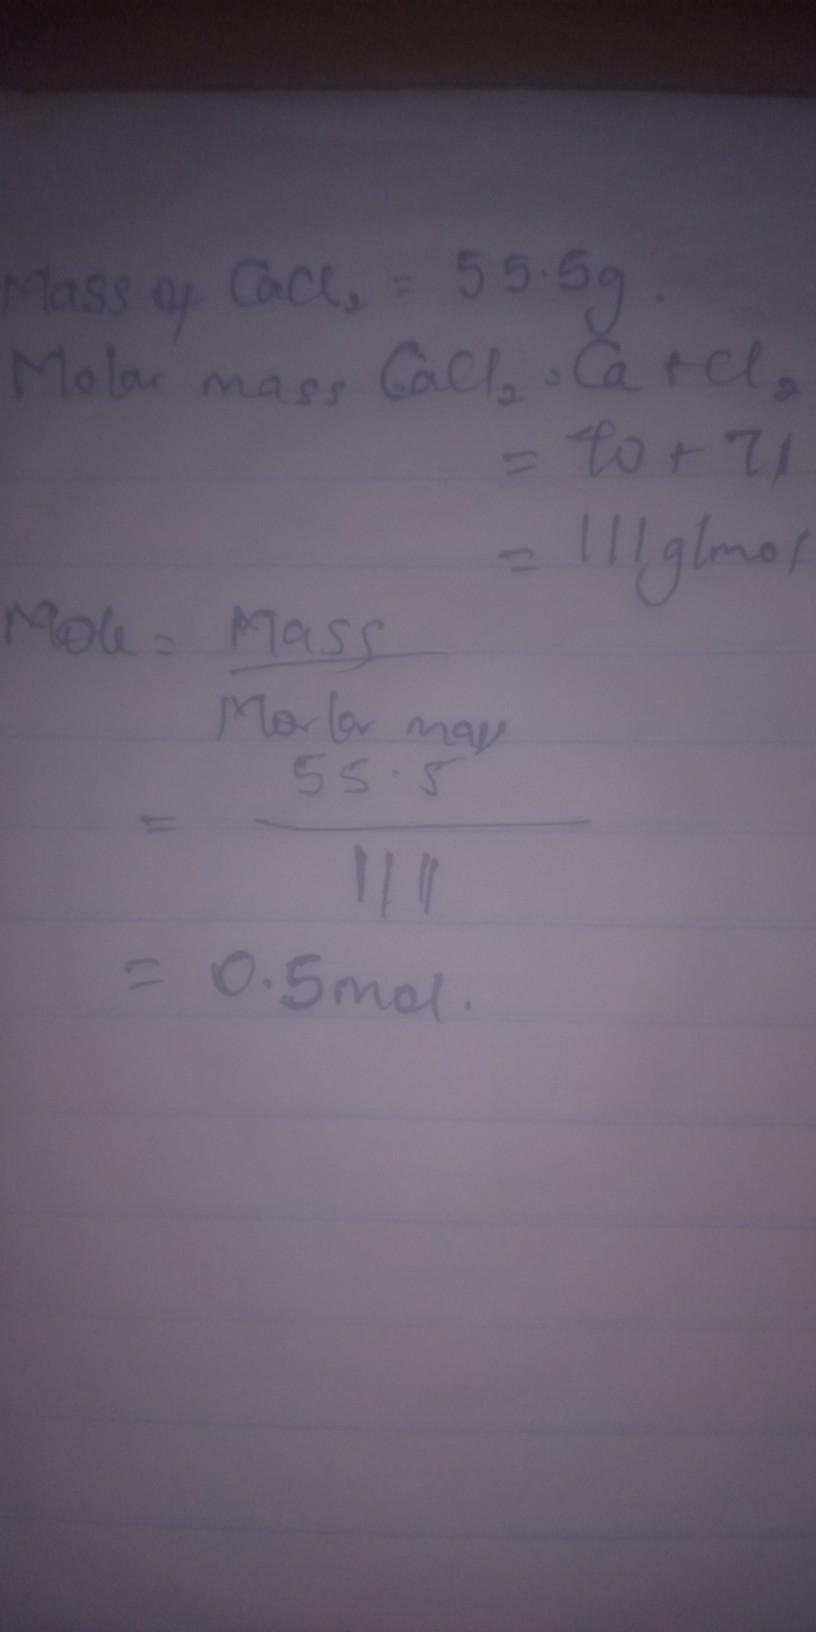 Mass of CaCl2 = 55.5g.
Molar mass CaCl2 = Ca + Cl2
= 40 + 71
= 111g/mol
Mole = Mass
Molar mass
55.5
=
111
= 0.5mol.